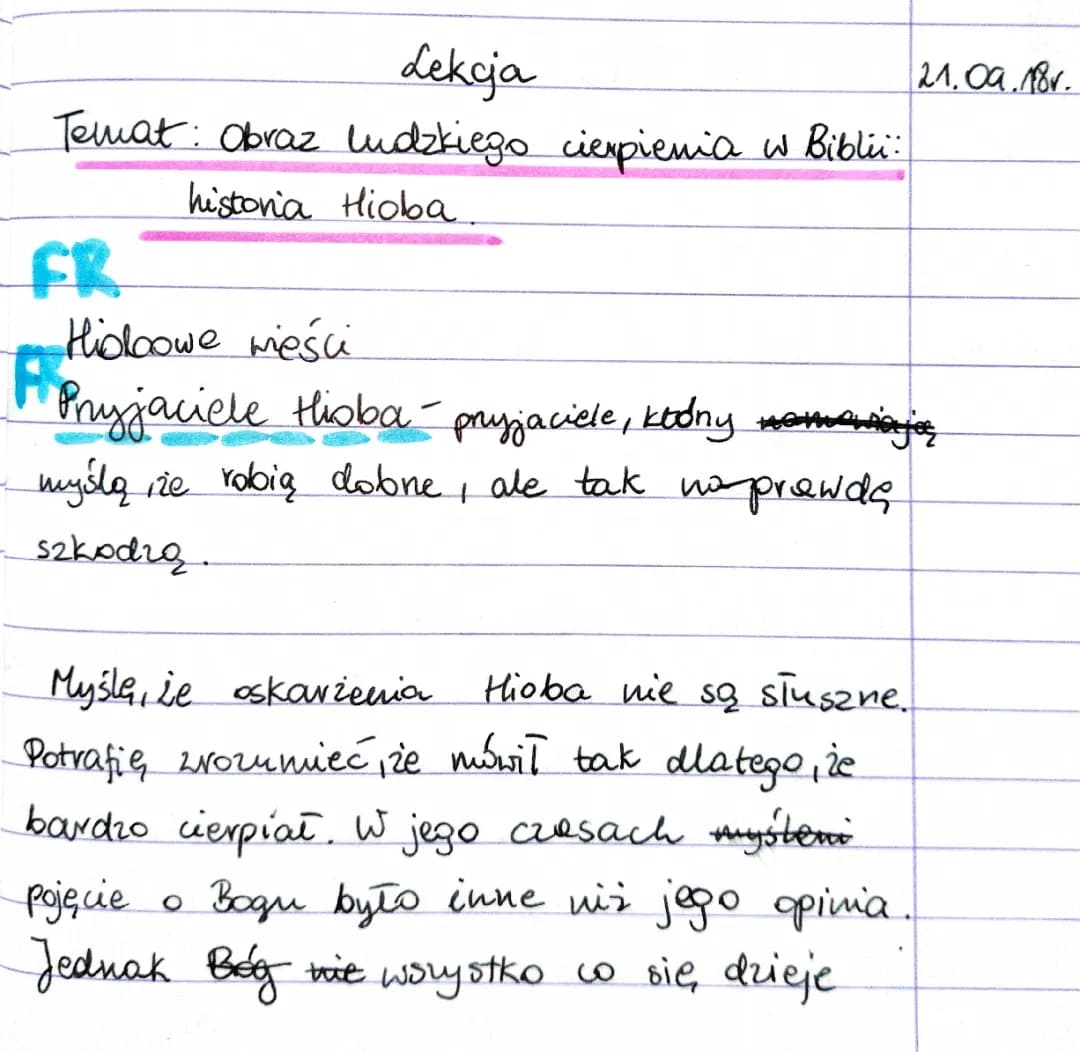 Lekcja 21.09.18r.
Temat: Obraz ludzkiego cierpienia w Biblii:
historia Hioba.
FR
Hiobowe wieści
FR
Przyjaciele Hioba - przyjaciele, którzy namawiają
myślą, że robią dobrze, ale tak naprawdę
szkodzą.
Myślę, że oskarżenia Hioba nie są słuszne.
Potrafię zrozumieć, że mówił tak dlatego, że
bardzo cierpiał. W jego czasach myśleni
pojęcie o Bogu było inne niż jego opinia.
Jednak Bóg nie wszystko co się dzieje